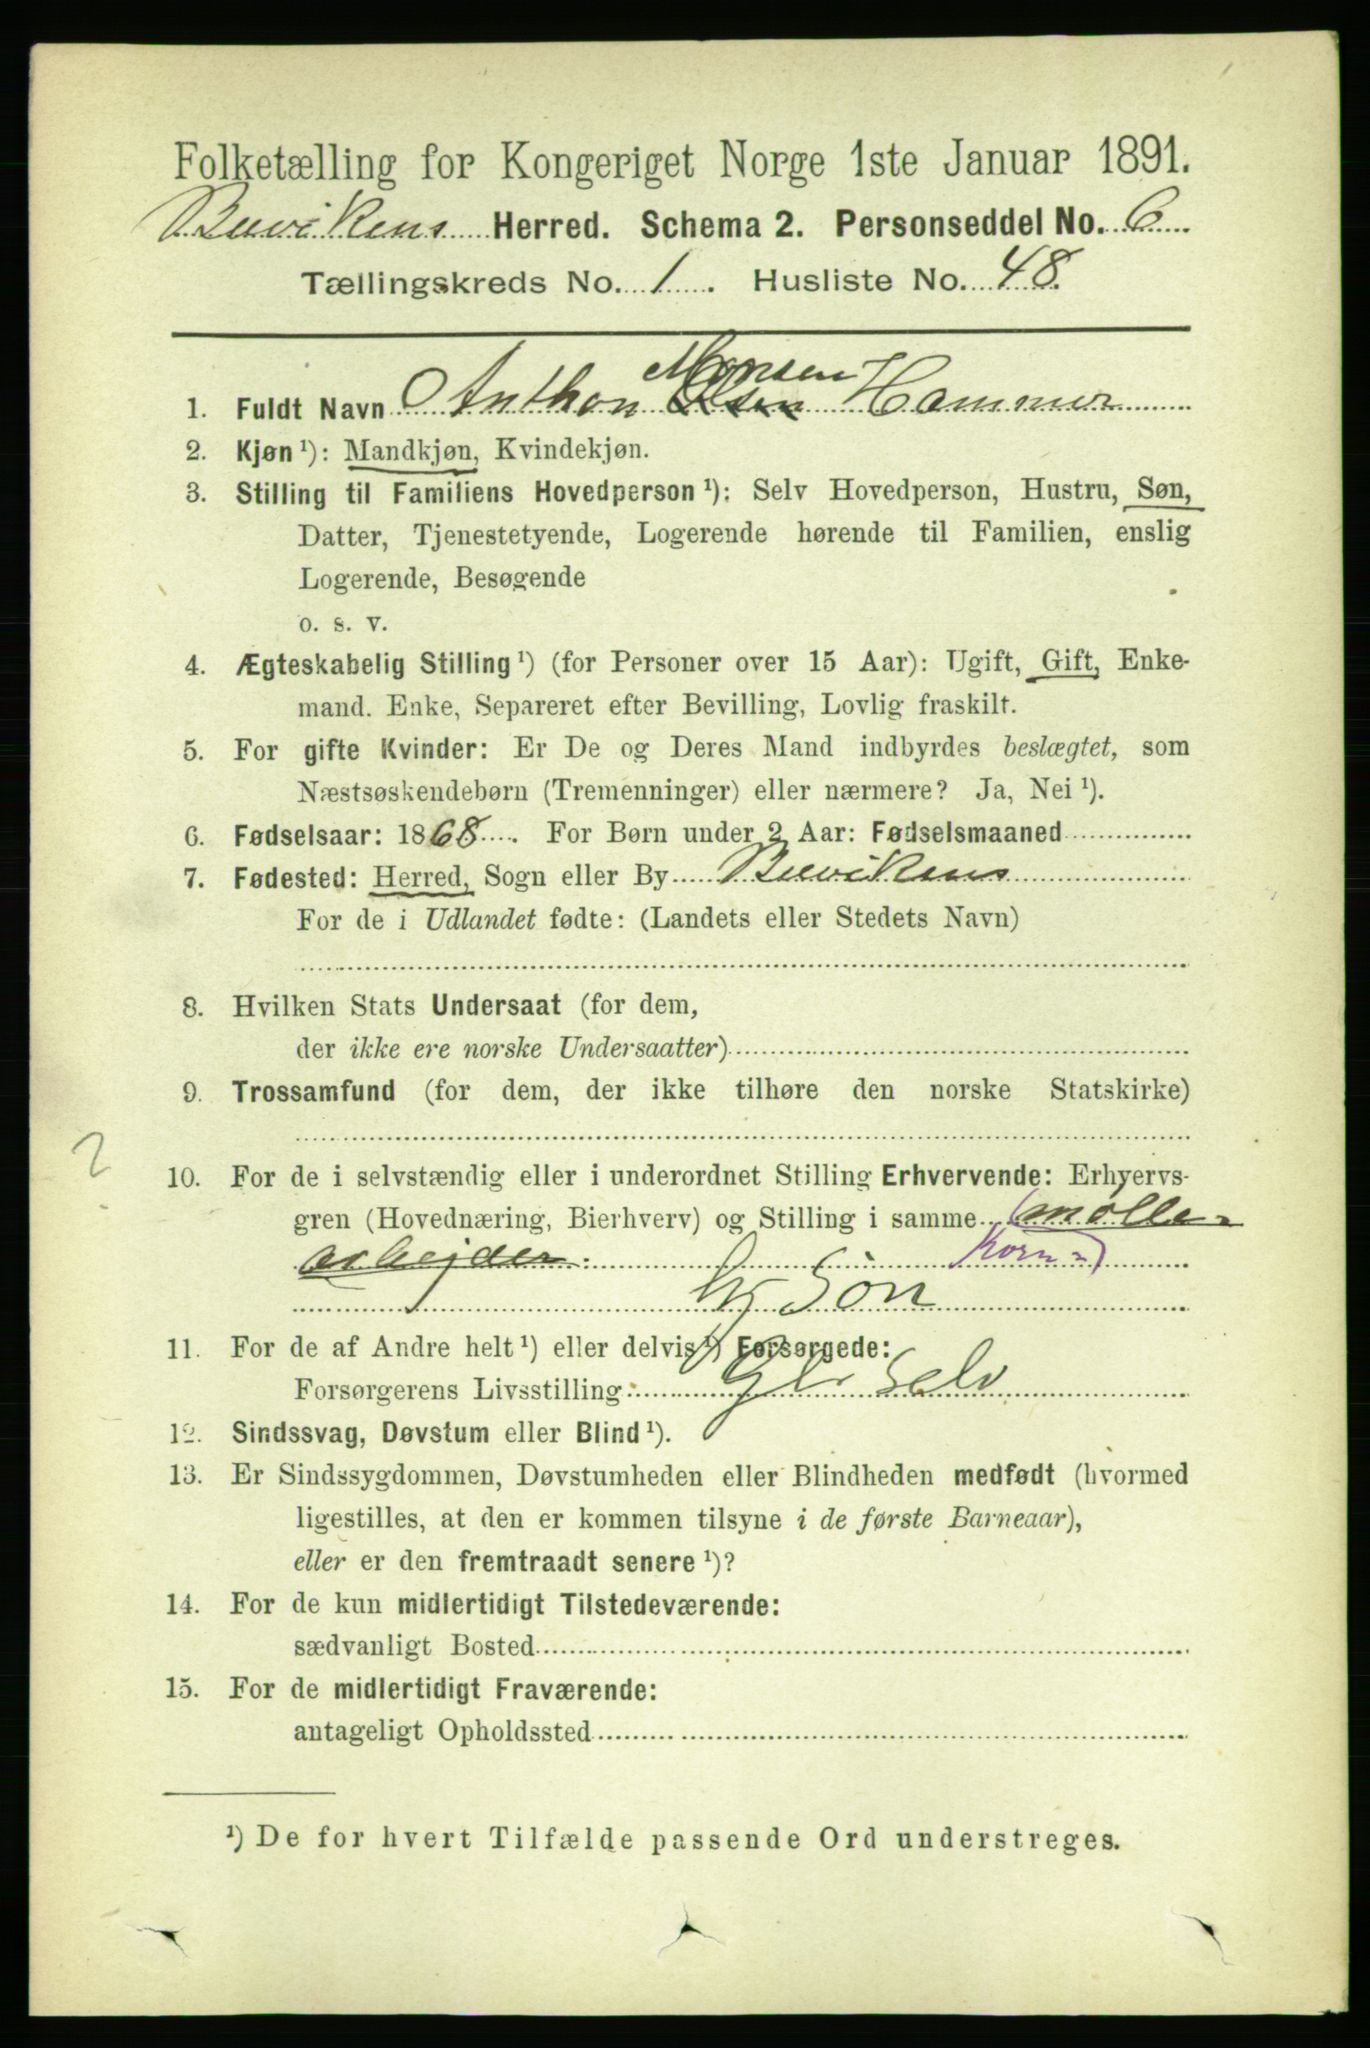 Folketælling for Kongeriget Norge 1ste Januar 1891.
Buvikens Herred. Schema 2. Personseddel No. 6
Tællingskreds No. 1. Husliste No. 48.
Monsen
1. Fuldt Navn Anthon Olsen Hammer
2. Kjøn ¹): Mandkjøn, Kvindekjøn.
3. Stilling til Familiens Hovedperson ¹): Selv Hovedperson, Hustru, Søn,
Datter, Tjenestetyende, Logerende hørende til Familien, enslig
Logerende, Besøgende
o. s. v.
4. Ægteskabelig Stilling ¹) (for Personer over 15 Aar): Ugift, Gift, Enke-
mand. Enke, Separeret efter Bevilling, Lovlig fraskilt.
5. For gifte Kvinder: Er De og Deres Mand indbyrdes beslægtet, som
Næstsøskendebørn (Tremenninger) eller nærmere? Ja, Nei ¹).
6. Fødselsaar: 1868. For Børn under 2 Aar: Fødselsmaaned
7. Fødested: Herred, Sogn eller By Buvikens
For de i Udlandet fødte: (Landets eller Stedets Navn)
8. Hvilken Stats Undersaat (for dem,
der ikke ere norske Undersaatter)
9. Trossamfund (for dem, der ikke tilhøre den norske Statskirke)
2
10. For de i selvstændig eller i underordnet Stilling Erhvervende: Erhvervs-
gren (Hovednæring, Bierhverv) og Stilling i samme mølle-
arbejder. Korn-)
Søn
11. For de af Andre helt ¹) eller delvis ¹) Forsørgede:
Forsørgerens Livsstilling: Selv
12. Sindssvag, Døvstum eller Blind ¹).
13. Er Sindssygdommen, Døvstumheden eller Blindheden medfødt (hvormed
ligestilles, at den er kommen tilsyne i de første Barneaar),
eller er den fremtraadt senere ¹)?
14. For de kun midlertidigt Tilstedeværende:
sædvanligt Bosted
15. For de midlertidigt Fraværende:
antageligt Opholdssted
¹) De for hvert Tilfælde passende Ord understreges.